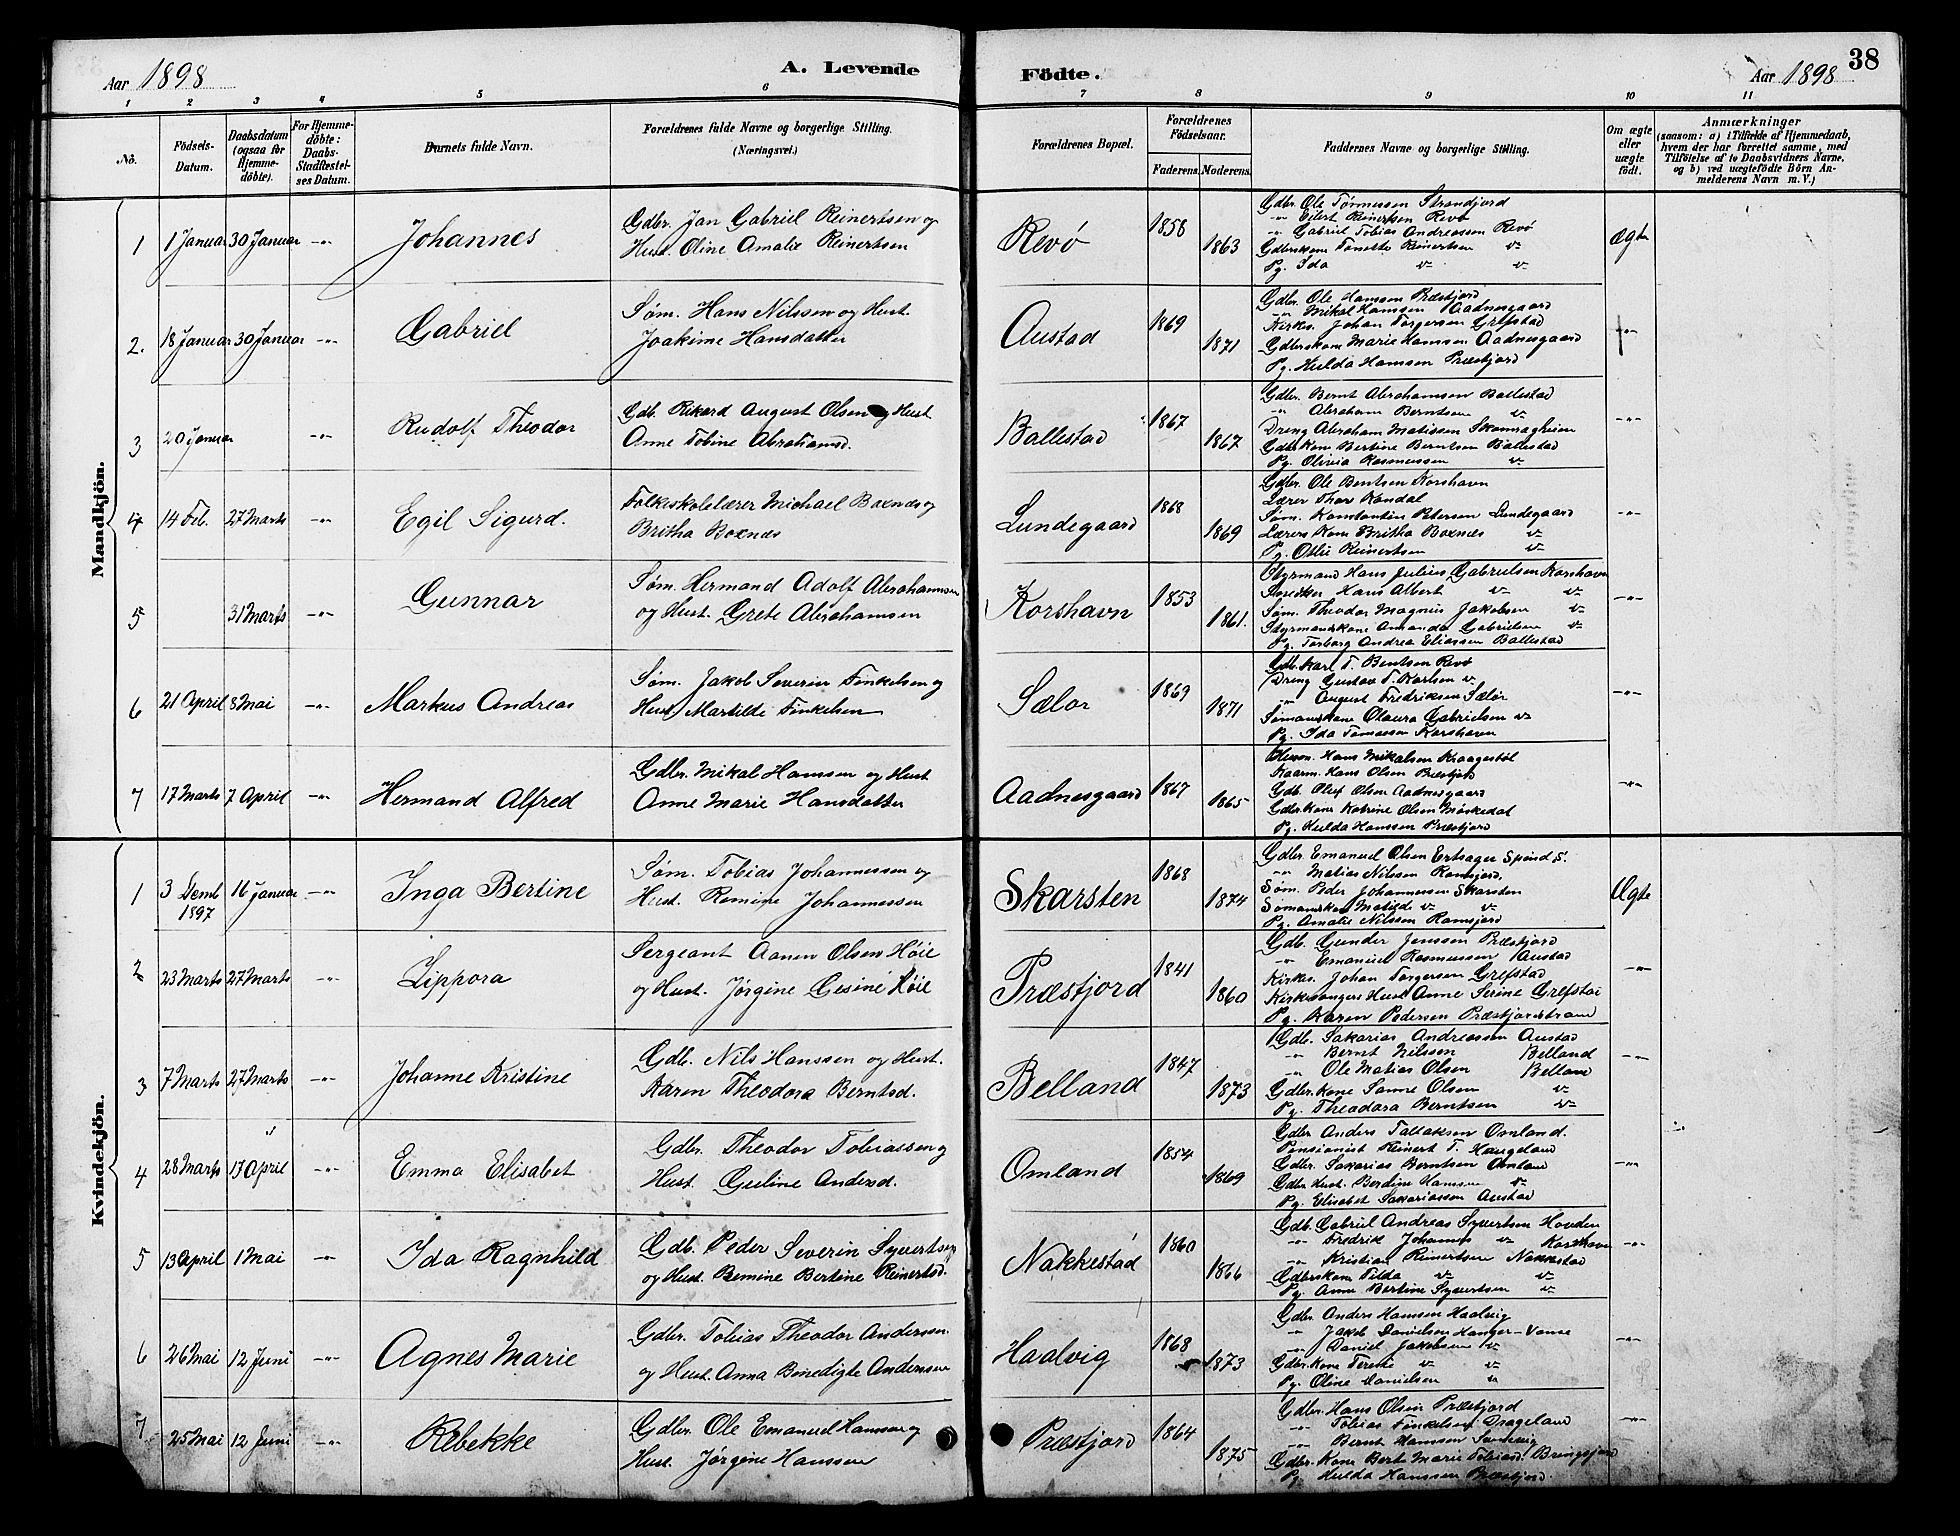 Aar 1898
A. Levende
Födte.
Aar 1898
38
1 2 3 4 5 6 7 8 9 10 11
No.
Födsels-Datum.
Daabsdatum (ogsaa for Hjemme-döbte).
For Hjemme-döbte: Daabs-Stadfæstel-ses Datum.
Barnets fulde Navn.
Forældrenes fulde Navne og borgerlige Stilling.
(Næringsvei.)
Forældrenes Bopæl.
Forældrenes Födselsaar.
Faderens. Moderens.
Faddernes Navne og borgerlige Stilling.
Om ægte eller uægte födt.
Anmærkninger
(saasom: a) i Tilfælde af Hjemmedaab, hvem der har forrettet samme, med Tilföielse af to Daabsvidners Navne, og b) ved uægtefödte Börn An-melderens Navn m. V.)
Mandkjön.
1 1 Januar 30 Januar -"- Johannes
Gdbr. Jan Gabriel Reinertsen og
Hust. Oline Amalie Reinertsen
Revø 1858 1863
Gdbr. Ole Tönnessen Strandjord
-"- Eilert Reinertsen Revø
-"- Gabriel Tobias Andreassen Revø
Gdbrskone Tonette Reinertsen v-
Pg. Ida v- v-
Ægte
2. 18 Januar 30 Januar -"- Gabriel
Søm. Hans Nilssen og Hust.
Joakime Hansdatter
Austad 1869 1871
Gdbr. Ole Hanssen Præstjord
-"- Mikal Hanssen Aadnesgaard
Kirkes. Johan Torgersen Grefstad
Gdbrskone Marie Hanssen Aadnesgaard
Pg. Hulda Hanssen Præstjord
-"-
3 20 Januar -"- Rudolf Theodor
Gdb. Rikard August Olsen og Hust
Anne Tobine Abrahamsd.
Ballestad 1867 1867
Gdbr. Bernt Abrahamsen Ballestad
-"- Abraham Berntsen v-
Dreng Abraham Matissen
Gdbrkone Bertine Berntsen Ballestad
Pg. Olivia Rasmussen v-
-"-
4 14 Feb. 27 Marts -"- Egil Sigurd.
Folkeskolelærer Michael Boxnæs og
Britha Boxnæs
Lundegaard 1868 1869
Gdbr. Ole Bentsen Korshavn
Lærer Thor Kandal
Søm. Konstantin Petersen Lundegaard
Lærers Kone Britha Boxnæs v-
Pg. Otlie Reinertsen v-
-"-
5 31 Marts -"- Gunnar
Søm. Hermand Adolf Abrahamsen
og Hust. Grete Abrahamsen
Korshavn 1853 1861.
Styrmand Hans Julius Gabrielsen Korshavn
Hans Albert v- v-
Søm. Theodor Magnus Jakobsen v-
Styrmandskone Amanda Gabrielsen v-
Pg. Torborg Andrea Eliassen Ballestad
-"-
6 21 April 8 Mai -"- Markus Andreas
Søm. Jakob Severin Finkelsen og
Hust. Martilde Finkelsen
Sælør 1869 1871
Gdb. Karl T. Bentsen Revø
Dreng Gustav T. Karlsen v-
-"- August Fredriksen Sælør
Sømandskone Olaura Gabrielsen v-
Pg. Ida Tønnessen Korshavn
-"-
7 17 Marts 7 April -"- Hermand Alfred
Gdbr. Mikal Hanssen og Hust
Anne Marie Hansdatter
Aadnesgaard 1867 1865
Hans Mikalsen Kraagestøl
Hans Olsen Præstjord
Gdb. Olef Olsen Aadnesgaard
Gdbrkone Katrine Olsen Möskedal
Pg. Hulda Hanssen Præstjord
-"-
Kvindekjön.
1 3 Demb 1897 16 Januar -"- Inga Bertine
Søm. Tobias Johannessen og
Hust. Remine Johannessen
Skarsten 1868 1874
Gdbr. Emanuel Olsen Ertsager Spind S.
-"- Matias Nilssen Ramsjord,
Søm. Peder Johannessen Skarsten
Sømandskone Matilde v- v-
Pg. Amalie Nilssen Ramsjord
Ægte
2 23 Marts 27 Marts -"- Zippora
Sergeant Aanen Olsen Høie
og Hust. Jørgine Gesine Høie
Præstjord 1841 1860
Gdb. Gunder Jenssen Præstjord
-"- Emanuel Rasmussen Austad
Kirkes. Johan Torgersen Grefstad
Kirkesangers Hust Anne Serine Grefstad
Pg. Karen Pedersen Præstjordstrand
-"-
3 7 Marts 27 Marts -"- Johanne Kristine
Gdb. Nils Hanssen og Hust.
Karen Theodora Berntsd.
Belland 1847 1873
Gdb. Sakarias Andreassen Austad
-"- Bernt Nilssen Belland
-"- Ole Matias Olsen Belland
Gdbr.kone Sanne Olsen v-
Pg. Theodora Berntsen v-
-"-
4 28 Marts 17 April -"- Emma Elisabet
Gdbr. Theodor Tobiassen og
Hust. Guline Andersd.
Omland 1854 1869
Gdbr. Anders Tallaksen Omland.
Pensionist Reinert T. Haugeland
Gdbr. Sakarias Berntsen Omland
Gdbr. Hust. Berdine Hanssen v-
Pg. Elisabet Sakariassen Austad
-"-
5 13 April 1 Mai -"- Ida Ragnhild
Gdb. Peder Severin Syvertsen
og Hust. Bemine Bertine Reinertsd.
Nakkestad 1860 1866
Gdb. Gabriel Andreas Syvertsen Hovden
-"- Fredrik Johannes v- Korshavn
-"- Kristian Reinertsen Nakkestad
Gdbrskone Tilda v- v-
Pg. Anne Bertine Syvertsen v-
-"-
6 26 Mai 12 Juni -"- Agnes Marie
Gdbr. Tobias Theodor Andersen
og Hust. Anna Benedigte Andersen
Haalvig 1868 1873
Gdbr. Anders Hanssen Haalvig
-"- Jakob Danielsen Hanger-Vanse
-"- Daniel Jakobsen v-
Gdbr.kone Terese v- v-
Pg. Oline Danielsen v-
-"-
7 25 Mai 12 Juni -"- Rebekke
Gdbr. Ole Emanuel Hanssen og
Hust. Jørgine Hanssen
Præstjord 1864 1875
Gdbr. Hans Olsen Præstjord
-"- Tobias Finkelsen Drageland
-"- Bernt Hanssen
Gdbr. Kone Bert Marie Tobiasd. Bringsjord
Pg. Hulda Hanssen Præstjord
-"-